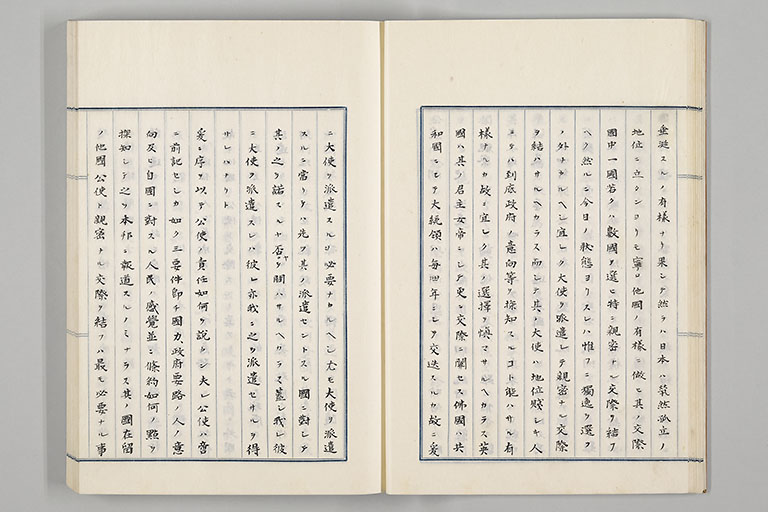 垂涎スルノ有様ナリ果シテ然ラハ日本ハ煢然孤立ノ
地位ニ立タンヨリモ寧ロ他國ノ有様ニ倣ヒ其ノ交際
國中一國若クハ數國ヲ選ヒ特ニ親密ナル交際ヲ結フ
ヘク然ルニ今日ノ狀態ヨリスレハ惟フニ獨逸ヲ選フ
ノ外ナカルヘシ宜シク大使ヲ派遣シテ親密ナル交際
ヲ結ハサルヘカラス而シテ其ノ大使ハ地位賤シキ人
ヨリハ到底政府ノ意向等ヲ探知スルコト能ハサル有
樣ナルカ故ニ宜シク其ノ選擇ヲ愼マサルヘカラス英
國ハ其ノ君主女帝ニシテ更ニ交際ニ關セス佛國ハ共
和國ニシテ大統領ハ毎四年ニシテ交迭スルカ故ニ爰
ニ大使ヲ派遣スルノ必要ナカルヘシ尤モ大使ヲ派遣
スルニ當リテハ先ツ其ノ派遣セントスル國ニ對シテ
其ノ之ヲ諾スルヤ否ヤヲ問ハサルヘカラス蓋シ我レ彼
ニ大使ヲ派遣スレハ彼レ亦我ニ之ヲ派遣セサルヲ得
サレハナリト
爰ニ序ヲ以テ公使ノ責任如何ヲ說カン夫レ公使ハ啻
ニ前記セシカ如ク三要件卽チ國力、政府要路ノ人ノ意
向及ヒ自國ニ對スル人民ノ感覺並ニ條約如何ノ點ヲ
探知シテ之ヲ本邦ニ報道スルノミナラス其ノ國在留
ノ他國公使ト親密ナル交際ヲ結フハ最モ必要ナル事